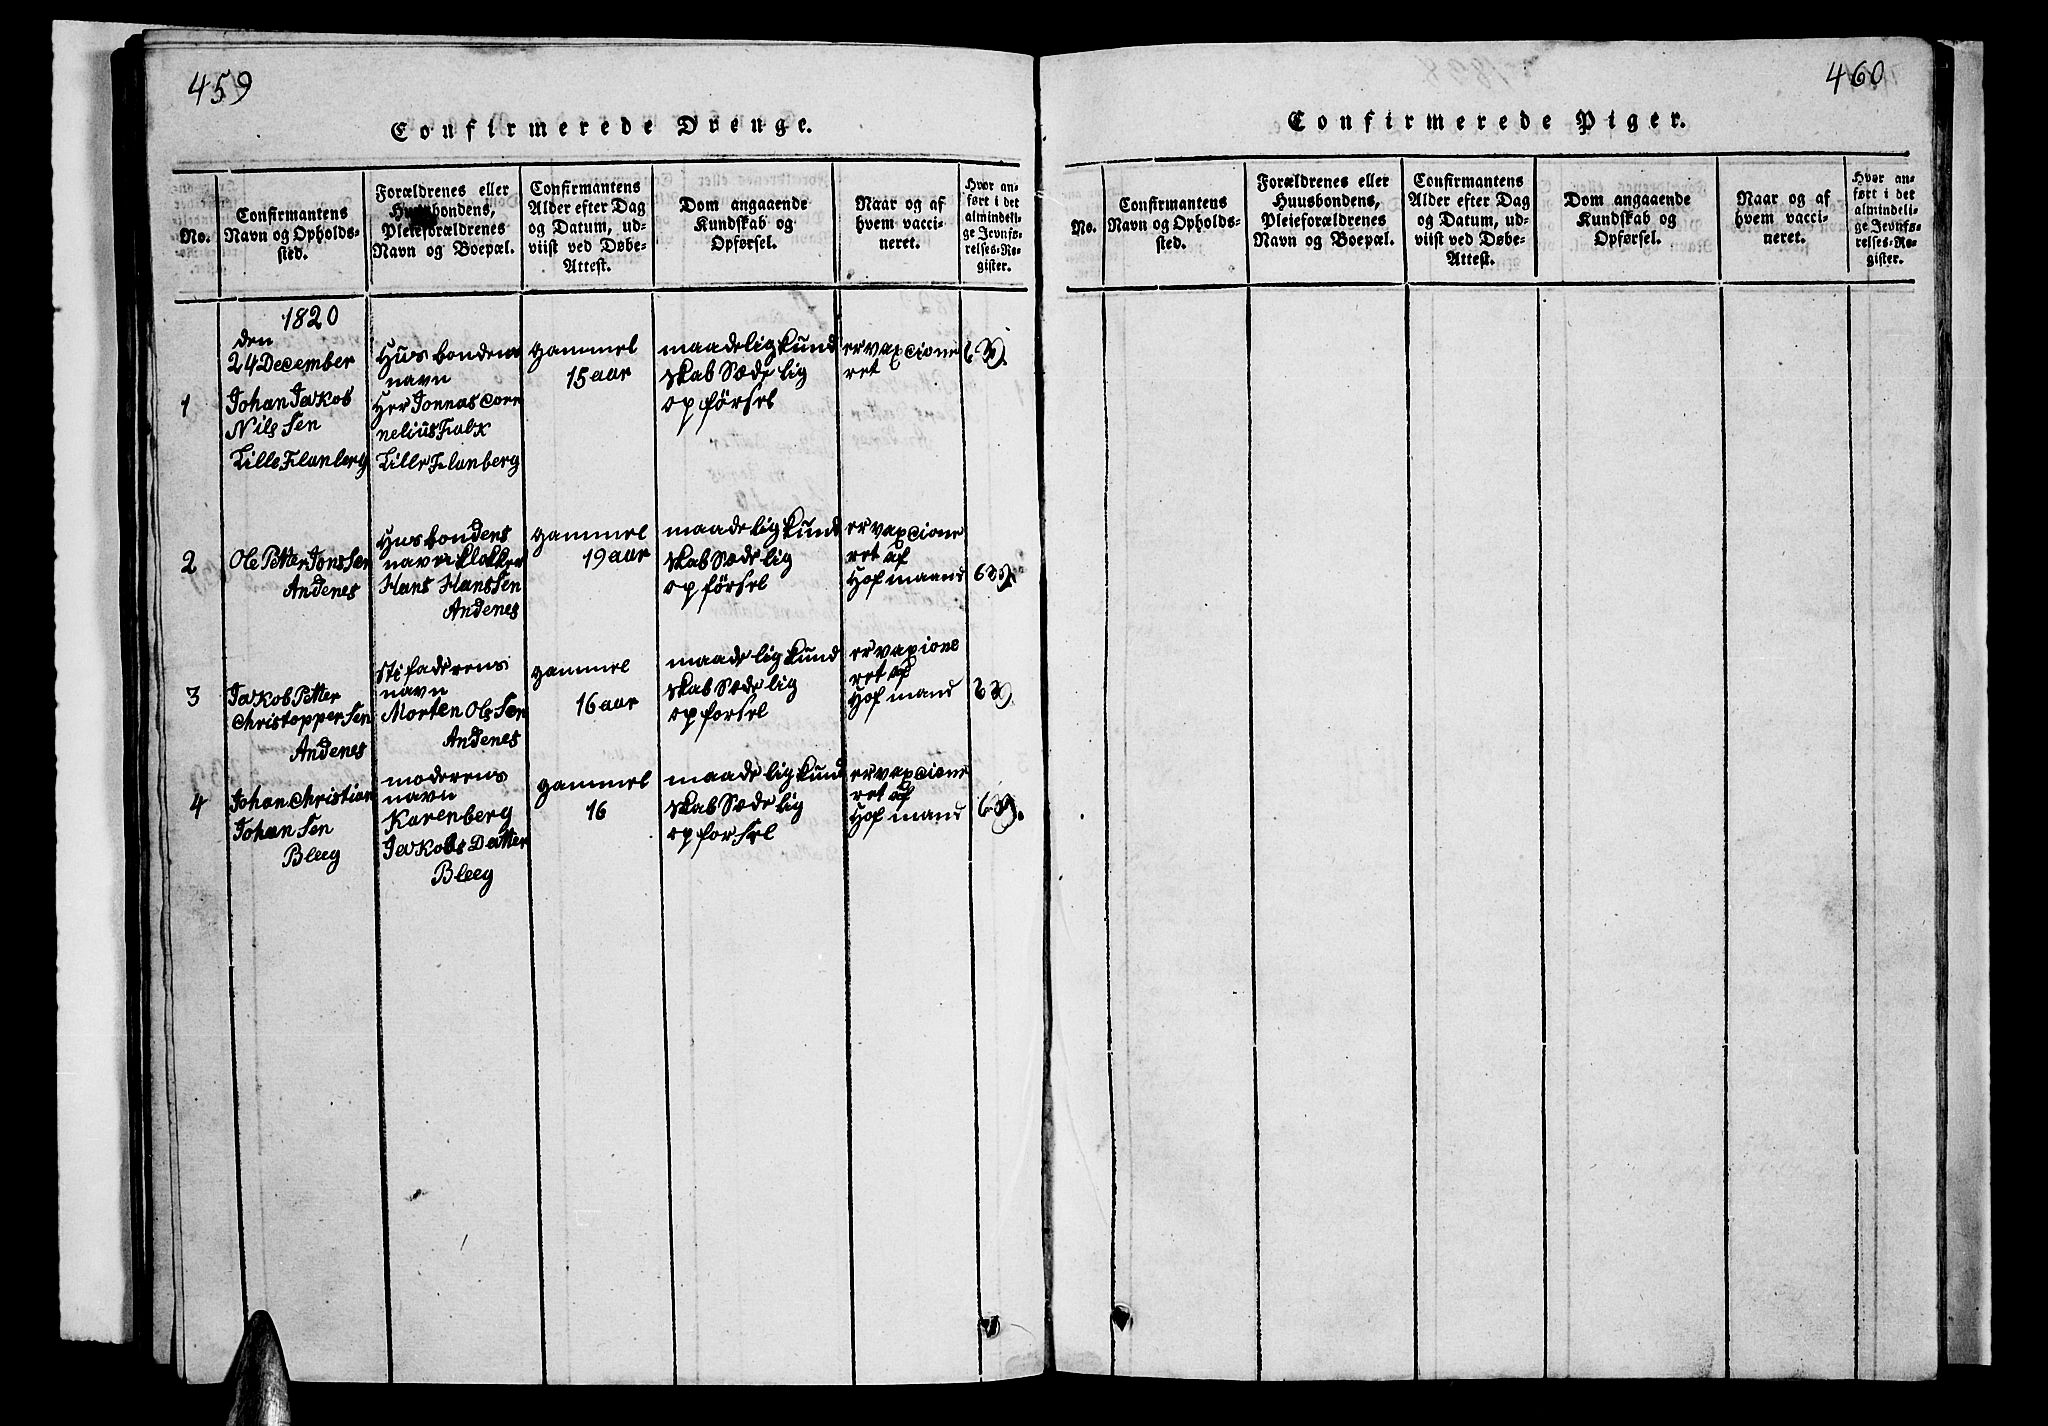 459
Confirmerede Drenge.
No.
Confirmantens
Navn og Opholds-
sted.
Forældrenes eller
Huusbondens,
Pleieforældrenes
Navn og Boepæl.
Confirmantens
Alder efter Dag
og Datum, ud-
viist ved Døbe-
Attest.
Dom angaaende
Kundskab og
Opførsel.
Naar og af
hvem vacci-
neret.
Hvor an-
ført i det
almindeli-
ge Jevnfø-
relses-Re-
gister.
1820
den
24 December
1
Johan Jakob
Nils Sen
Lille Flanberg
Husbondens
navn
Her Jonnas Cor
nelius Falk
Lille Flanberg
gammel
15 aar
maadelig kund
skab Sædelig
opførsel
er vaxcione
ret
639.
2
Ole Petter Jons Sen
Andenes
Husbondens
navn klokker
Hans Hans Sen
Andenes
gammel
19 aar
maadelig kund
skab Sædelig
opførsel
er vaxcione
ret af
Hofmaand
639.
3
Jakob Petter
Christopper Sen
Andenes
Stifaderens
navn
Morten Ols Sen
Andenes
gammel
16 aar
maadelig kund
skab Sædelig
opforsel
er vaxione
ret af
Hofmand
639.
4
Johan Christian
Johan Sen
Bleeg
moderens
navn
Karenberg
Jakobs Datter
Bleeg
gammel
16
maadelig kund
skab Sædelig
opforsel
er vaxcione
ret af
Hofmand
639.
460
Confirmerede Piger.
No.
Confirmantens
Navn og Opholds-
sted.
Forældrenes eller
Huusbondens,
Pleieforældrenes
Navn og Boepæl.
Confirmantens
Alder efter Dag
og Datum, ud-
viist ved Døbe-
Attest.
Dom angaaende
Kundskab og
Opførsel.
Naar og af
hvem vacci-
neret.
Hvor an-
ført i det
almindeli-
ge Jevnfø-
relses-Re-
gister.